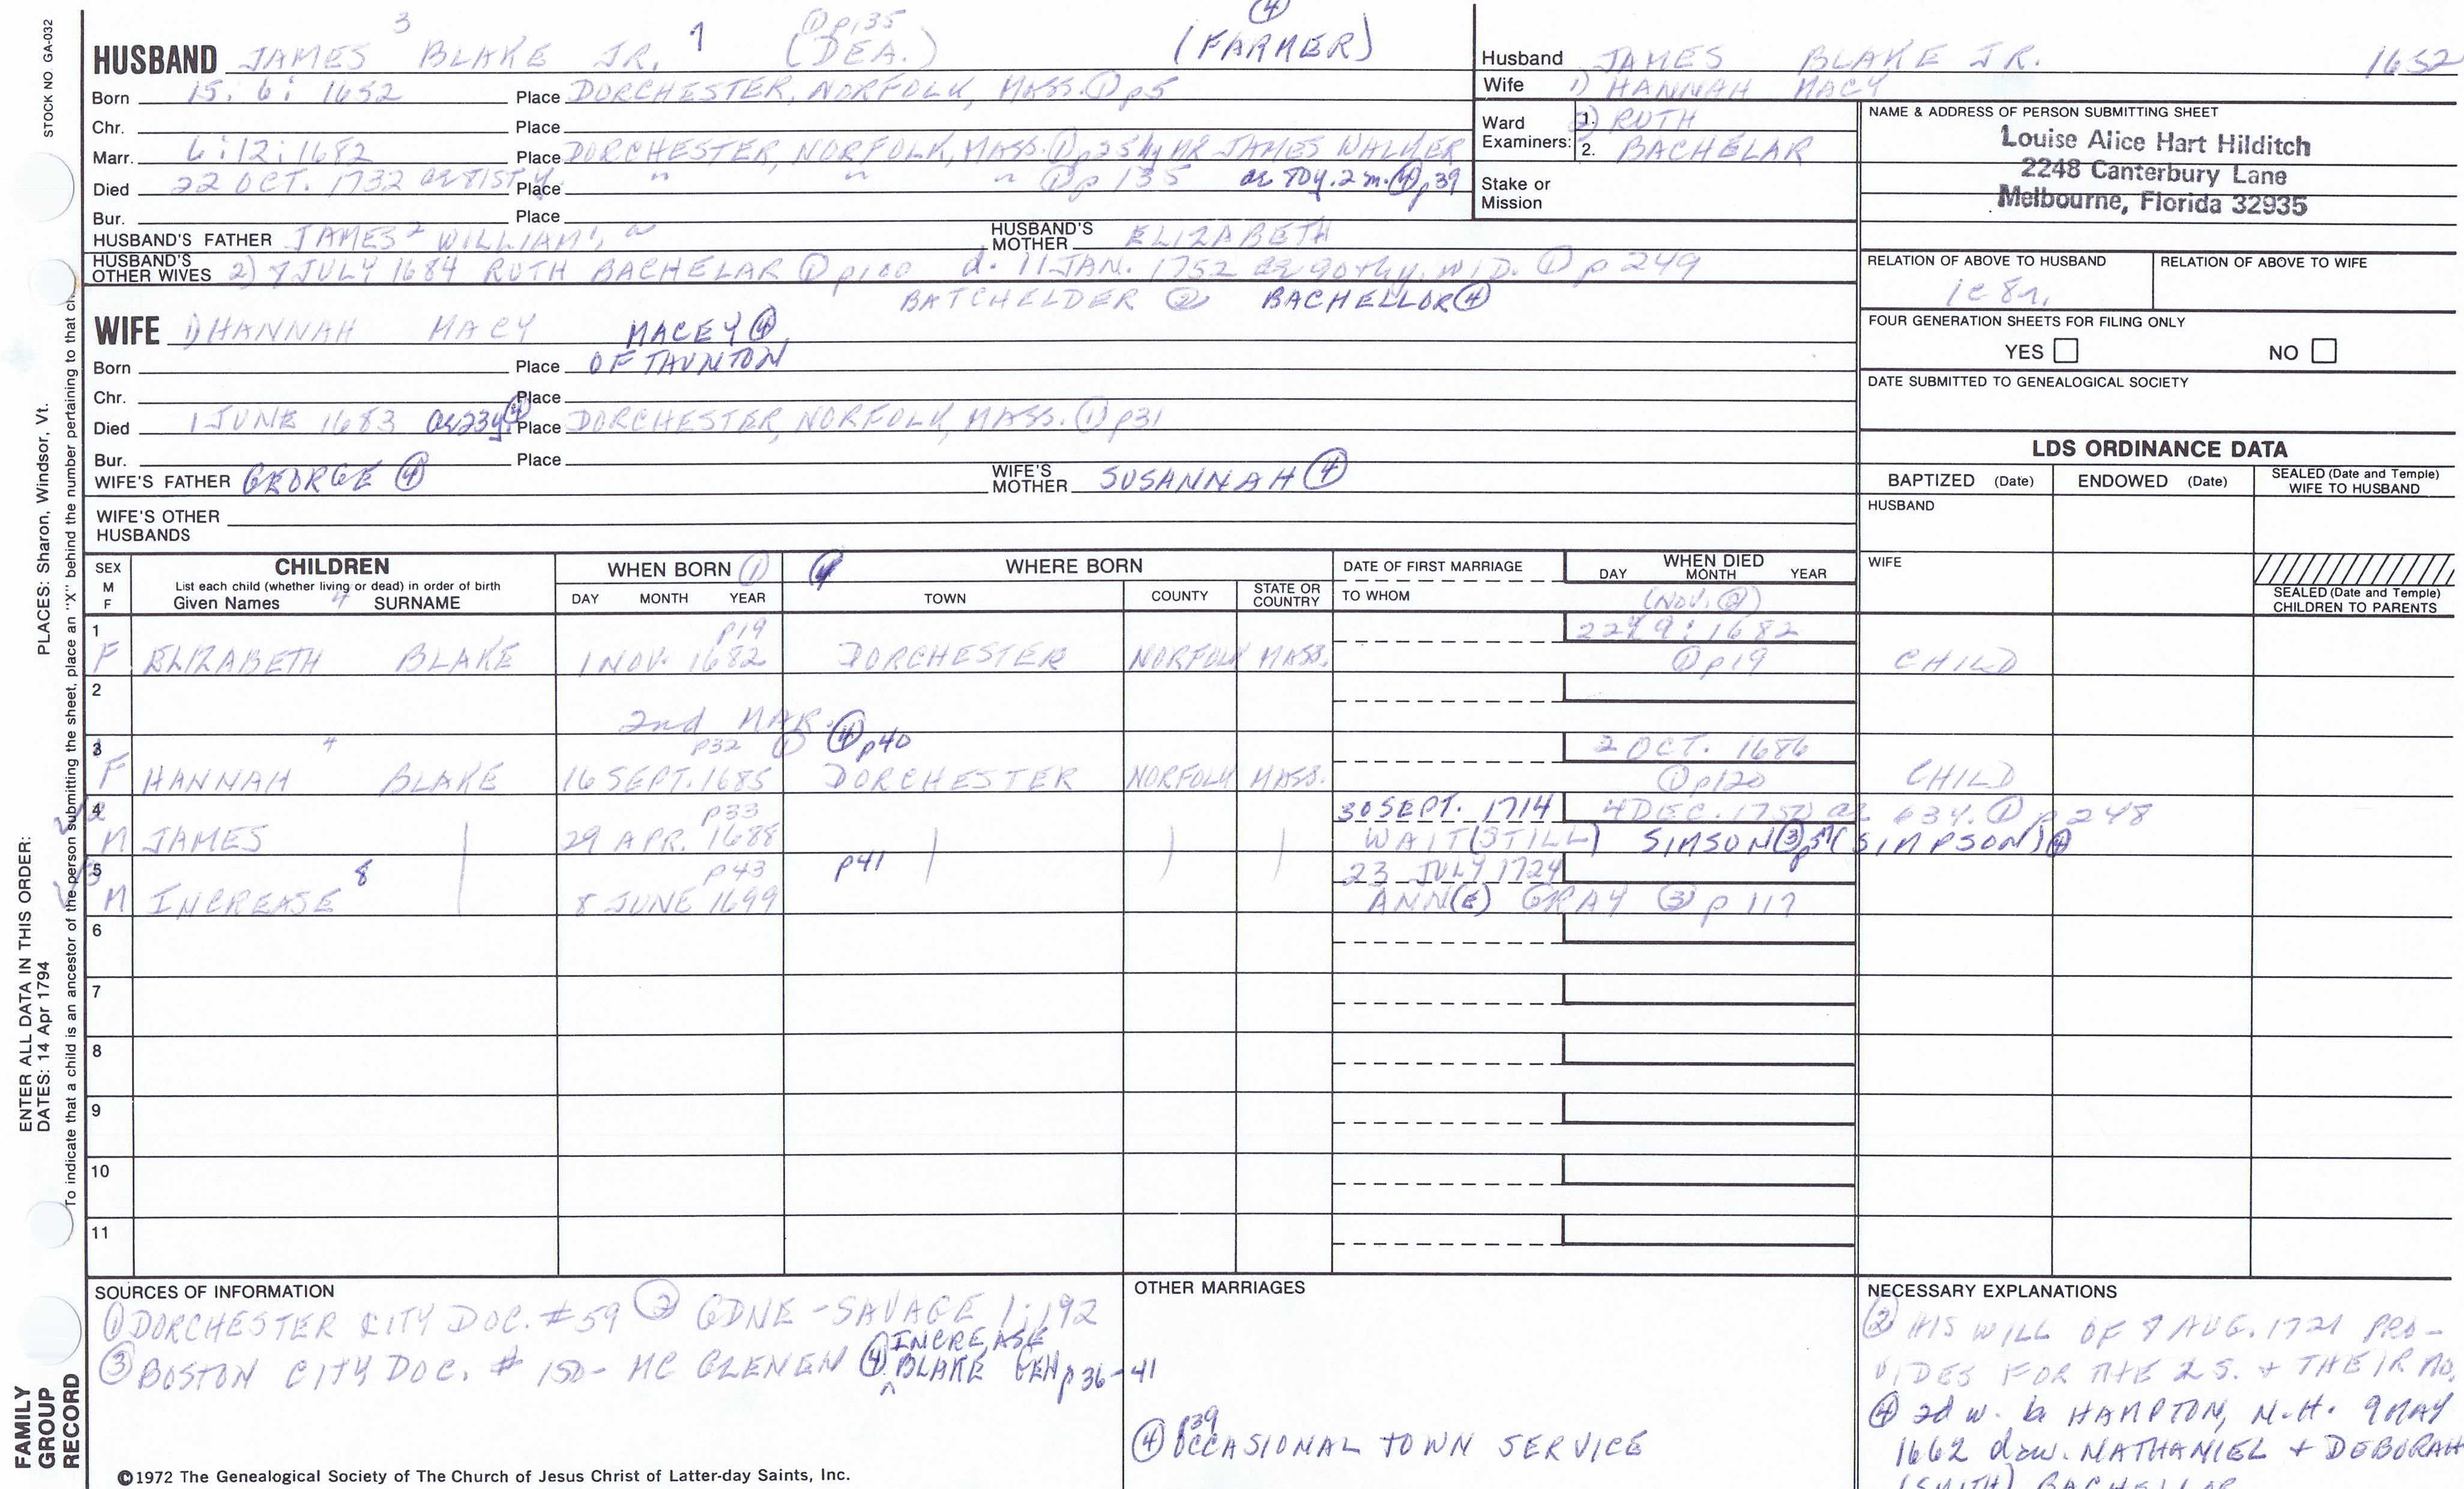 STOCK NO. GA-032
HUSBAND JAMES 3 BLAKE JR. 1 ① p135 (DEA.) ④ (FARMER)
Born 15: 6: 1652 Place DORCHESTER, NORFOLK, MASS. ① p5
Chr. Place
Marr. 6:12:1682 Place DORCHESTER, NORFOLK, MASS. ① p25 by MR JAMES WALKER
Died 22 OCT. 1732 Place " " " ① p135 ae 80y. 2 m. ④ p39
Bur. Place
HUSBAND'S FATHER JAMES 2 WILLIAM 1 HUSBAND'S MOTHER ELIZABETH
HUSBAND'S OTHER WIVES 2) 8 JULY 1684 RUTH BACHELAR ① p100 d. 11 JAN. 1752 ae 90thy. WID. ① p 249
BATCHELDER ② BACHELLOR ④
WIFE 1) HANNAH MACY MACEY ④
Born Place OF TAUNTON
Chr. Place
Died 1 JUNE 1683 ae 23y. ④ Place DORCHESTER, NORFOLK, MASS. ① p31
Bur. Place
WIFE'S FATHER GEORGE ④ WIFE'S MOTHER SUSANNAH ④
WIFE'S OTHER HUSBANDS
Husband JAMES BLAKE JR. 1652
Wife 1) HANNAH MACY
Ward Examiners: 1. 2) RUTH
2. BACHELAR
Stake or Mission
NAME & ADDRESS OF PERSON SUBMITTING SHEET
Louise Alice Hart Hilditch
2248 Canterbury Lane
Melbourne, Florida 32935
RELATION OF ABOVE TO HUSBAND RELATION OF ABOVE TO WIFE
1c 8r.
FOUR GENERATION SHEETS FOR FILING ONLY
YES NO
DATE SUBMITTED TO GENEALOGICAL SOCIETY
LDS ORDINANCE DATA
BAPTIZED (Date) ENDOWED (Date) SEALED (Date and Temple) WIFE TO HUSBAND
HUSBAND
WIFE
SEALED (Date and Temple) CHILDREN TO PARENTS
SEX M F CHILDREN WHEN BORN ① ④ WHERE BORN DATE OF FIRST MARRIAGE WHEN DIED
List each child (whether living or dead) in order of birth
Given Names 4 SURNAME DAY MONTH YEAR TOWN COUNTY STATE OR COUNTRY TO WHOM DAY MONTH YEAR
(NOV. ②)
1 p19 22: 9: 1682
F ELIZABETH BLAKE 1 NOV. 1682 DORCHESTER NORFOLK MASS. ① p19 CHILD
2
2nd MAR.
3 4 p32 ① ④ p40 2 OCT. 1686
F HANNAH BLAKE 16 SEPT. 1685 DORCHESTER NORFOLK MASS. ① p120 CHILD
4 p33 30 SEPT. 1714 4 DEC. 1750 ae 63y. ① p 248
M JAMES 29 APR. 1688 WAIT(STILL) SIMSON ③ p51 (SIMPSON) ④
5 8 p43 p41 23 JULY 1724
M INCREASE 8 JUNE 1699 ANN(E) GRAY ③ p 117
6
7
8
9
10
11
SOURCES OF INFORMATION
① DORCHESTER CITY DOC. #59 ② GDNE - SAVAGE 1:192
③ BOSTON CITY DOC. # 150- MC GLENEN ④ INCREASE BLAKE GEN p 36-41
OTHER MARRIAGES
④ p39 OCCASIONAL TOWN SERVICE
NECESSARY EXPLANATIONS
② HIS WILL OF 8 AUG. 1721 PRO-
VIDES FOR THE 2 S. + THEIR MO.
④ 2d w. b HAMPTON, N.H. 9 MAY
1662 dau. NATHANIEL + DEBORAH
(SMITH) BACHELLOR
©1972 The Genealogical Society of The Church of Jesus Christ of Latter-day Saints, Inc.
FAMILY GROUP RECORD
ENTER ALL DATA IN THIS ORDER:
DATES: 14 Apr 1794
PLACES: Sharon, Windsor, Vt.
To indicate that a child is an ancestor of the person submitting the sheet, place an "X" behind the number pertaining to that